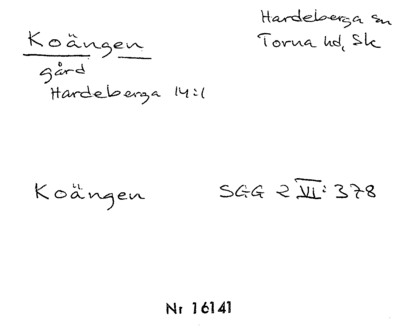 Koängen
Hardeberga sn
Torna hd, Sk
gård
Hardeberga 14:1
Koängen SGG 2 VI: 378
Nr 16141